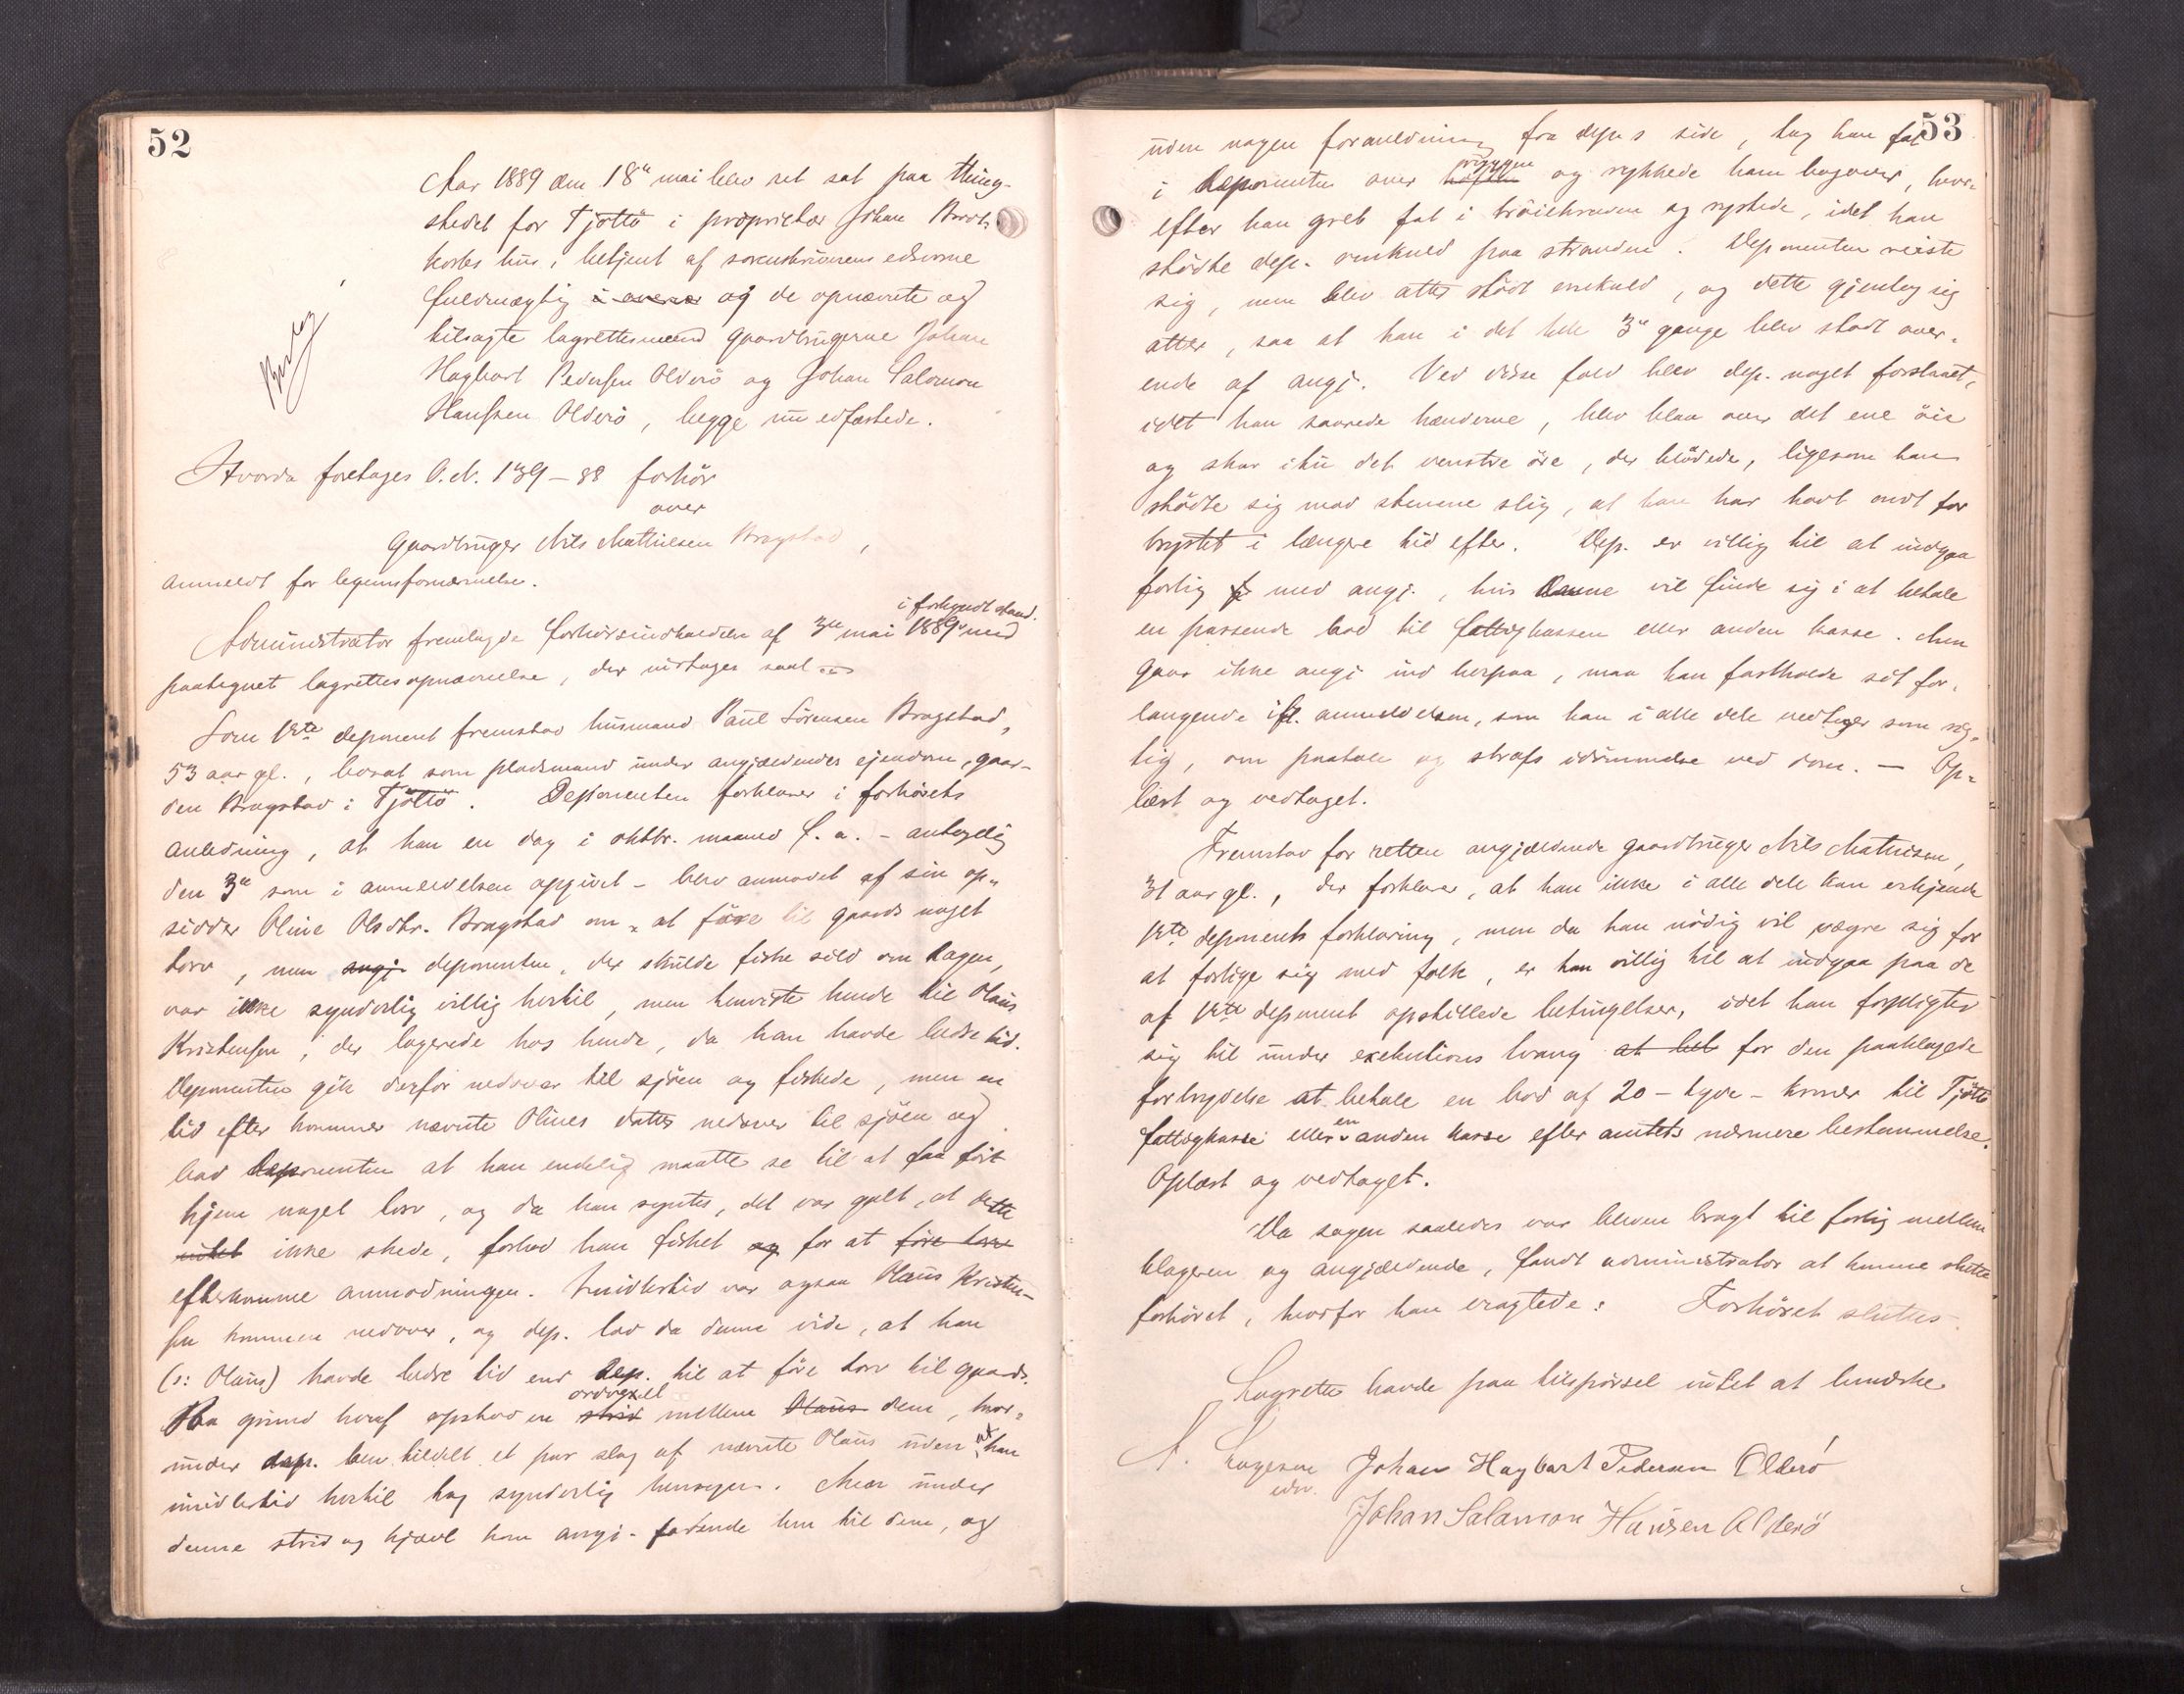 52
Aar 1889 den 18de mai blev ret sat paa thing-
stedet for Tjøttø i proprietær Johan Brod-
korbs hus, betjent af sorenskriverens edsvorne
fuldmægtig og de opnævnte og
tilsagte lagrettesmænd gaardbrugerne Johan
Hagbart Pedersen Olderö og Johan Salomon
Hanssen Olderö, begge nu edfæstede.
Hvorda foretages O. N. 139-88 forhör
over
gaardbruger Nils Mathiesen Bragstad,
anmeldt for legemsfornærmelse.
i forkyndt stand.
Administrator fremlagde forhörsindkaldelse af 3die mai 1889 med
paategnet lagrettesopnævnelse, der indtages saal.
Som 1ste deponent fremstod husmand Paul Sörensen Bragstad,
53 aar gl., boSat som pladsmand under angjældendes ejendom, gaar-
den Bragstad i Tjöttö. Deponenten forklarer i forhörets
anledning, at han en dag i oktbr. maaned f. a. - antagelig
den 3de som i anmeldelsen opgivet - blev anmodet af sin op-
sidder Oline Olsdtr. Bragstad om at före til gaards noget
torv, men angj. deponenten, der skulde fiske sild om dagen,
var ikke synderlig villig hertil, men henviste hende til Olaus
Kristensen, der logerede hos hende, da han havde bedre tid.
Deponenten gik derfor nedover til sjöen og fiskede, men en
tid efter kommer nævnte Olines datter nedover til sjöen og
bad deponenten at han endelig maatte se til at faa fört
hjem noget torv, og da han syntes, det var galt, at dette
intet ikke skede, forlod han fisket og for at före torv
efterkomme anmodningen. Imidlertid var ogsaa Olaus Kristen-
sen kommen nedover, og dep. lod da denne vide, at han
(ɔ: Olaus) havde bedre tid end dep. til at före torv til gaards.
ordvexel
Paa grund heraf opstod en strid mellem Olaus dem, hvor-
under dep. blev tildelt et par slag af nævnte Olaus uden at han
imidlertid hertil tog synderlig hensyn. Men under
denne strid og kjævl kom angj. farende hen til dem, og
53
uden nogen foranledning fra dep s side, tog han fat
ryggen
i deponenten over og rykkede ham bagover, hvor-
efter han greb fat i tröiekraven og rystede, idet han
stödte dep. omkuld paa stranden. Deponenten reiste
sig, men blev atter stödt omkuld, og dette gjentog sig
atter, saa at han i det hele 3de gange blev stödt over-
ende af angj. Ved disse fald blev dep. noget forslaaet,
idet han saarede hænderne, blev blaa over det ene öie
og skar itu det venstre öre, der blödede, ligesom han
stödte sig mod stenene slig, at han har havt ondt for
brystet i længere tid efter. Dep. er villig til at indgaa
forlig med angj., hvis denne vil finde sig i at betale
en passende bod til fattigkassen eller anden kasse. Men
gaar ikke angj. ind herpaa, maa han fastholde sit for-
langende ifl. anmeldelsen, som han i alle dele vedtager som rig-
tig, om paatale og strafs idömmelse ved dom. — Op-
læst og vedtaget.
Fremstod for retten angjældende gaardbruger Nils Mathisen,
31 aar gl., der forklarer, at han ikke i alle dele kan erkjende
1ste deponents forklaring, men da han nödig vil vægre sig for
at forlige sig med folk, er han villig til at indgaa paa de
af 1ste deponent opstillede betingelser, idet han forpligter
sig til under exekutions tvang at bet for den paaklagede
forbrydelse at betale en bod af 20 - tyve - kroner til Tjöttö
en
fattigkasse eller anden kasse efter amtets nærmere bestemmelse.
Oplæst og vedtaget.
Da sagen saaledes var bleven bragt til forlig mellem
klageren og angjældende, fandt administrator at kunne slutte
forhöret, hvorfor han eragtede: Forhöret sluttes.
Lagretten havde paa tilspörsel intet at bemærke.
A. Lagesen Johan Hagbart Pedersen Olderö
edsv.
Johan Salamon Hansen Olderö